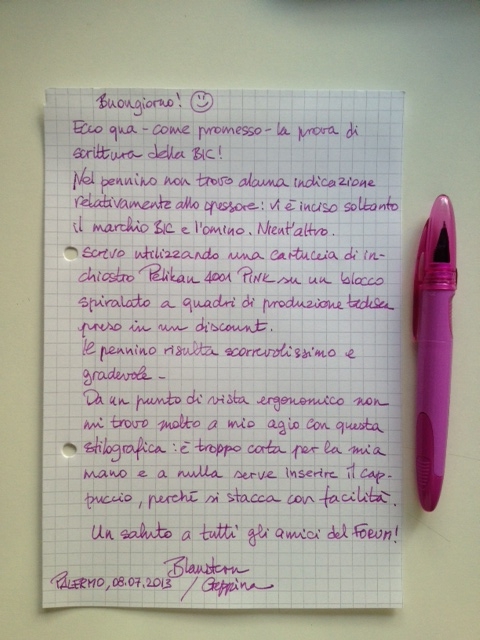 Buongiorno! ☺
Ecco qua - come promesso - la prova di
scrittura della BIC!
Nel pennino non trovo alcuna indicazione
relativamente allo spessore: vi è inciso soltanto
il marchio BIC e l'omino. Nient'altro.
Scrivo utilizzando una cartuccia di in-
chiostro Pelikan 4001 PINK su un blocco
spiralato a quadri di produzione tedesca
preso in un discount.
Il pennino risulta scorrevolissimo e
gradevole -
Da un punto di vista ergonomico non
mi trovo molto a mio agio con questa
stilografica: è troppo corta per la mia
mano e a nulla serve inserire il cap-
puccio, perché si stacca con facilità.
Un saluto a tutti gli amici del FORUM!
Blaustern
PALERMO, 08.07.2013 / Geppina